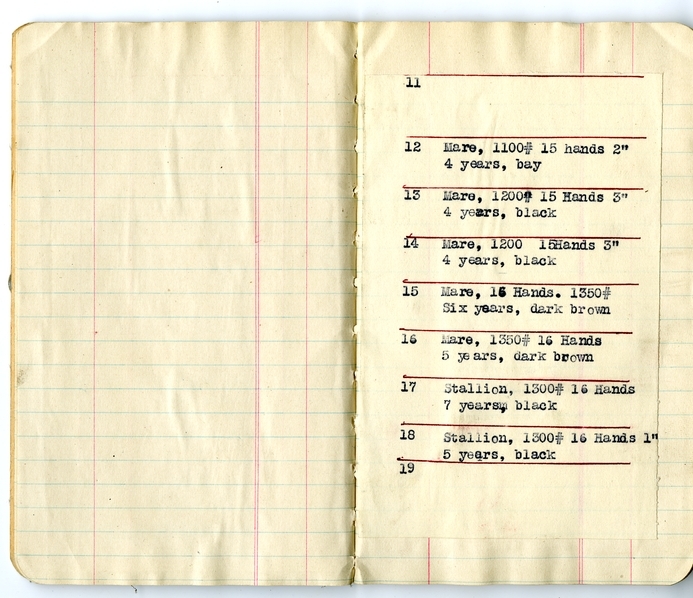 11
12 Mare, 1100# 15 hands 2"
4 years, bay
13 Mare, 1200# 15 Hands 3"
4 years, black
14 Mare, 1200 15Hands 3"
4 years, black
15 Mare, 16 Hands. 1350#
Six years, dark brown
16 Mare, 1350# 16 Hands
5 years, dark brown
17 Stallion, 1300# 16 Hands
7 years, black
18 Stallion, 1300# 16 Hands 1"
5 years, black
19